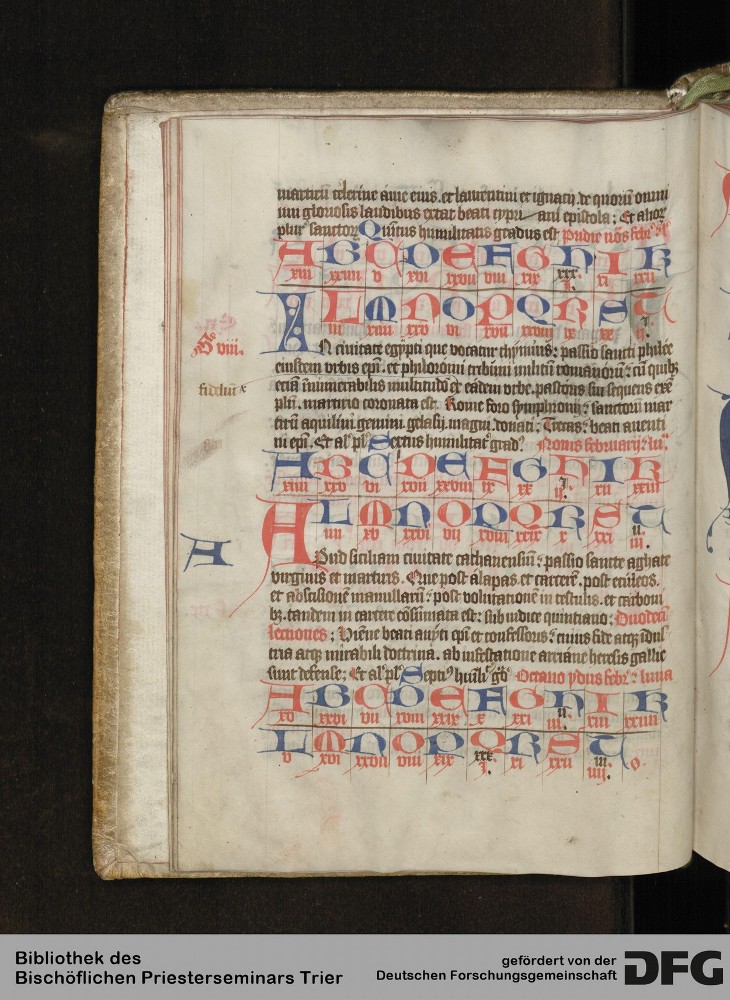 martirū celerine āme eius. et laurentini et ignacij. de quorū omni
um gloriosis laudibus extat beati cypri ani epistola; Et alior
plur' sanctorꝝ Quītus humilitatis gradus est Pridie nōs febr'
A B C D E F G H I K
xiii xxiiii v xvi xxvii viii xix xxx. xi xxii
i.
L M N O P Q R S T
iii xiiii xxv vi xvii xxviii ix xx i.
ii.
IN ciuitate egypti que vocatur thymuis: passio sancti philee
eiusdem vrbis epī. et philoromi tribuni militū romanorū: cū quibꝫ
eciā innumerabilis multitudo ex eadem vrbe. pastoris sui sequens exē
plū. martirio coronata est. Rome foro symphronij: sanctorū mar
tirū aquilini gemini gelasij. magni. donati; Trecas: beati auenti
ni epī. Et al' pl' Sextus humilitat' grad' Nonis februarij: lu'
A B C D E F G H I K
xiiii xxv vi xvii xxviii ix xx i. xii xxiii
ii.
L M N O P Q R S T
iiii xv xxvi vii xviii xxix x xxi ii.
iii.
APud siciliam ciuitate cathanensiū: passio sancte agathe
virginis et martiris. Que post alapas. et carcerē. post eculeos.
et abscisionē mamillarū: post volutationē in testulis. et carboni
bꝫ. tandem in carcere cōsūmata est: sub iudice quintiano; Duodecī
lectiones; Viēne beati auyti epī et confessoris: cuius fide atqꝫ īdus
tria atqꝫ mirabili doctrina. ab infestatione arriane heresis gallie
sunt defense; Et al' pl' Septi' huīli' g'd' Octauo ydus febr': luna
A B C D E F G H I K
xv xxvi vii xviii xxix x xxi ii. xiii xxiiii
iii.
L M N O P Q R S T
v xvi xxvii viii xix xxx. xi xxii iii. o.
i. iiii.
viii.
fidelium
A
Bibliothek des
Bischöflichen Priesterseminars Trier
gefördert von der
Deutschen Forschungsgemeinschaft
DFG